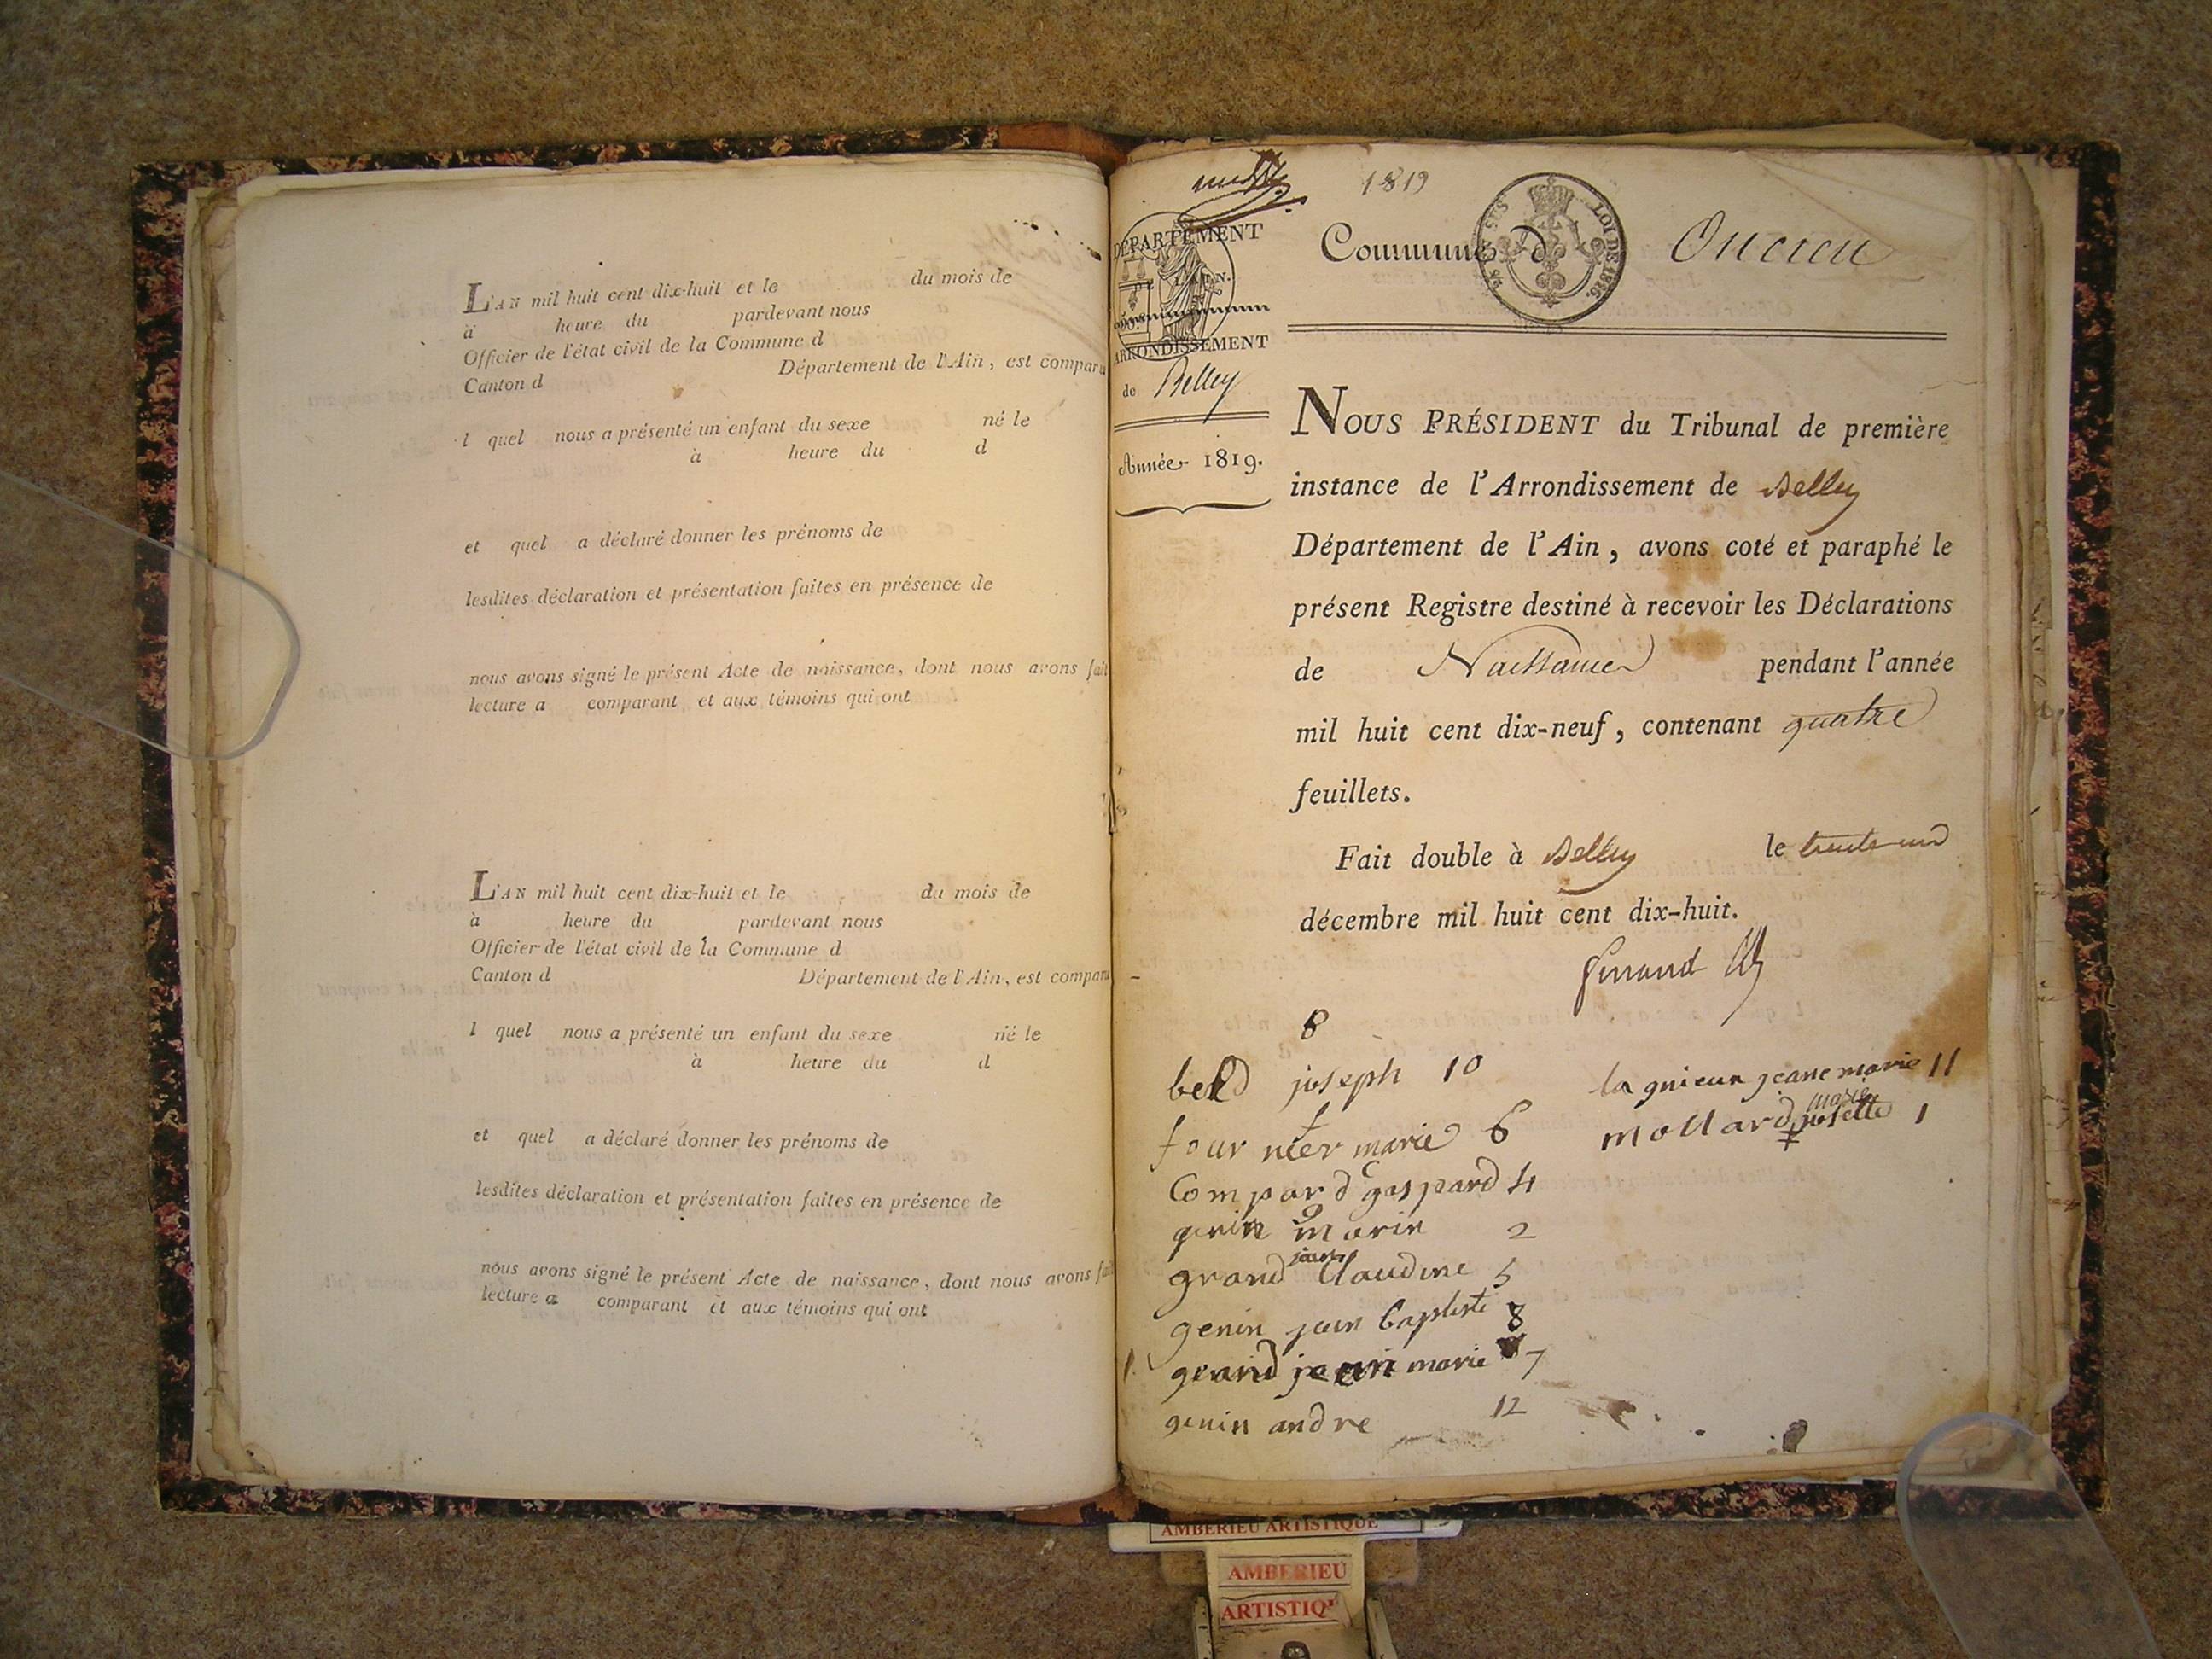 L'AN mil huit cent dix-huit et le du mois de
à heure du pardevant nous
Officier de l'état civil de la Commune d
Canton d Département de l'Ain, est comparu
l quel nous a présenté un enfant du sexe né le
à heure du d
et quel a déclaré donner les prénoms de
lesdites déclaration et présentation faites en présence de
nous avons signé le présent Acte de naissance, dont nous avons fait
lecture a comparant et aux témoins qui ont
L'AN mil huit cent dix-huit et le du mois de
à heure du pardevant nous
Officier de l'état civil de la Commune d
Canton d Département de l'Ain, est comparu
l quel nous a présenté un enfant du sexe né le
à heure du d
et quel a déclaré donner les prénoms de
lesdites déclaration et présentation faites en présence de
nous avons signé le présent Acte de naissance, dont nous avons fai
lecture a comparant et aux témoins qui ont
1819
DÉPARTEMENT
L'AIN.
ARRONDISSEMENT
de Belley
Année 1819.
Commune d' Oncieu
LOI DE 1816.
NOUS PRÉSIDENT du Tribunal de première
instance de l'Arrondissement de Belley
Département de l'Ain, avons coté et paraphé le
présent Registre destiné à recevoir les Déclarations
de Naissances pendant l'année
mil huit cent dix-neuf, contenant quatre
feuillets.
Fait double à Belley le trente un
décembre mil huit cent dix-huit.
8
joseph 10
la gnieux jeane marie 11
fournier marie 6
mollard marie josette 1
Compard gaspard 4
genin marin 2
grand jean Claudine 5
genin jean baptiste 8
grand jean marie 7
genin andre 12
AMBERIEU ARTISTIQUE
AMBERIEU
ARTISTIQ